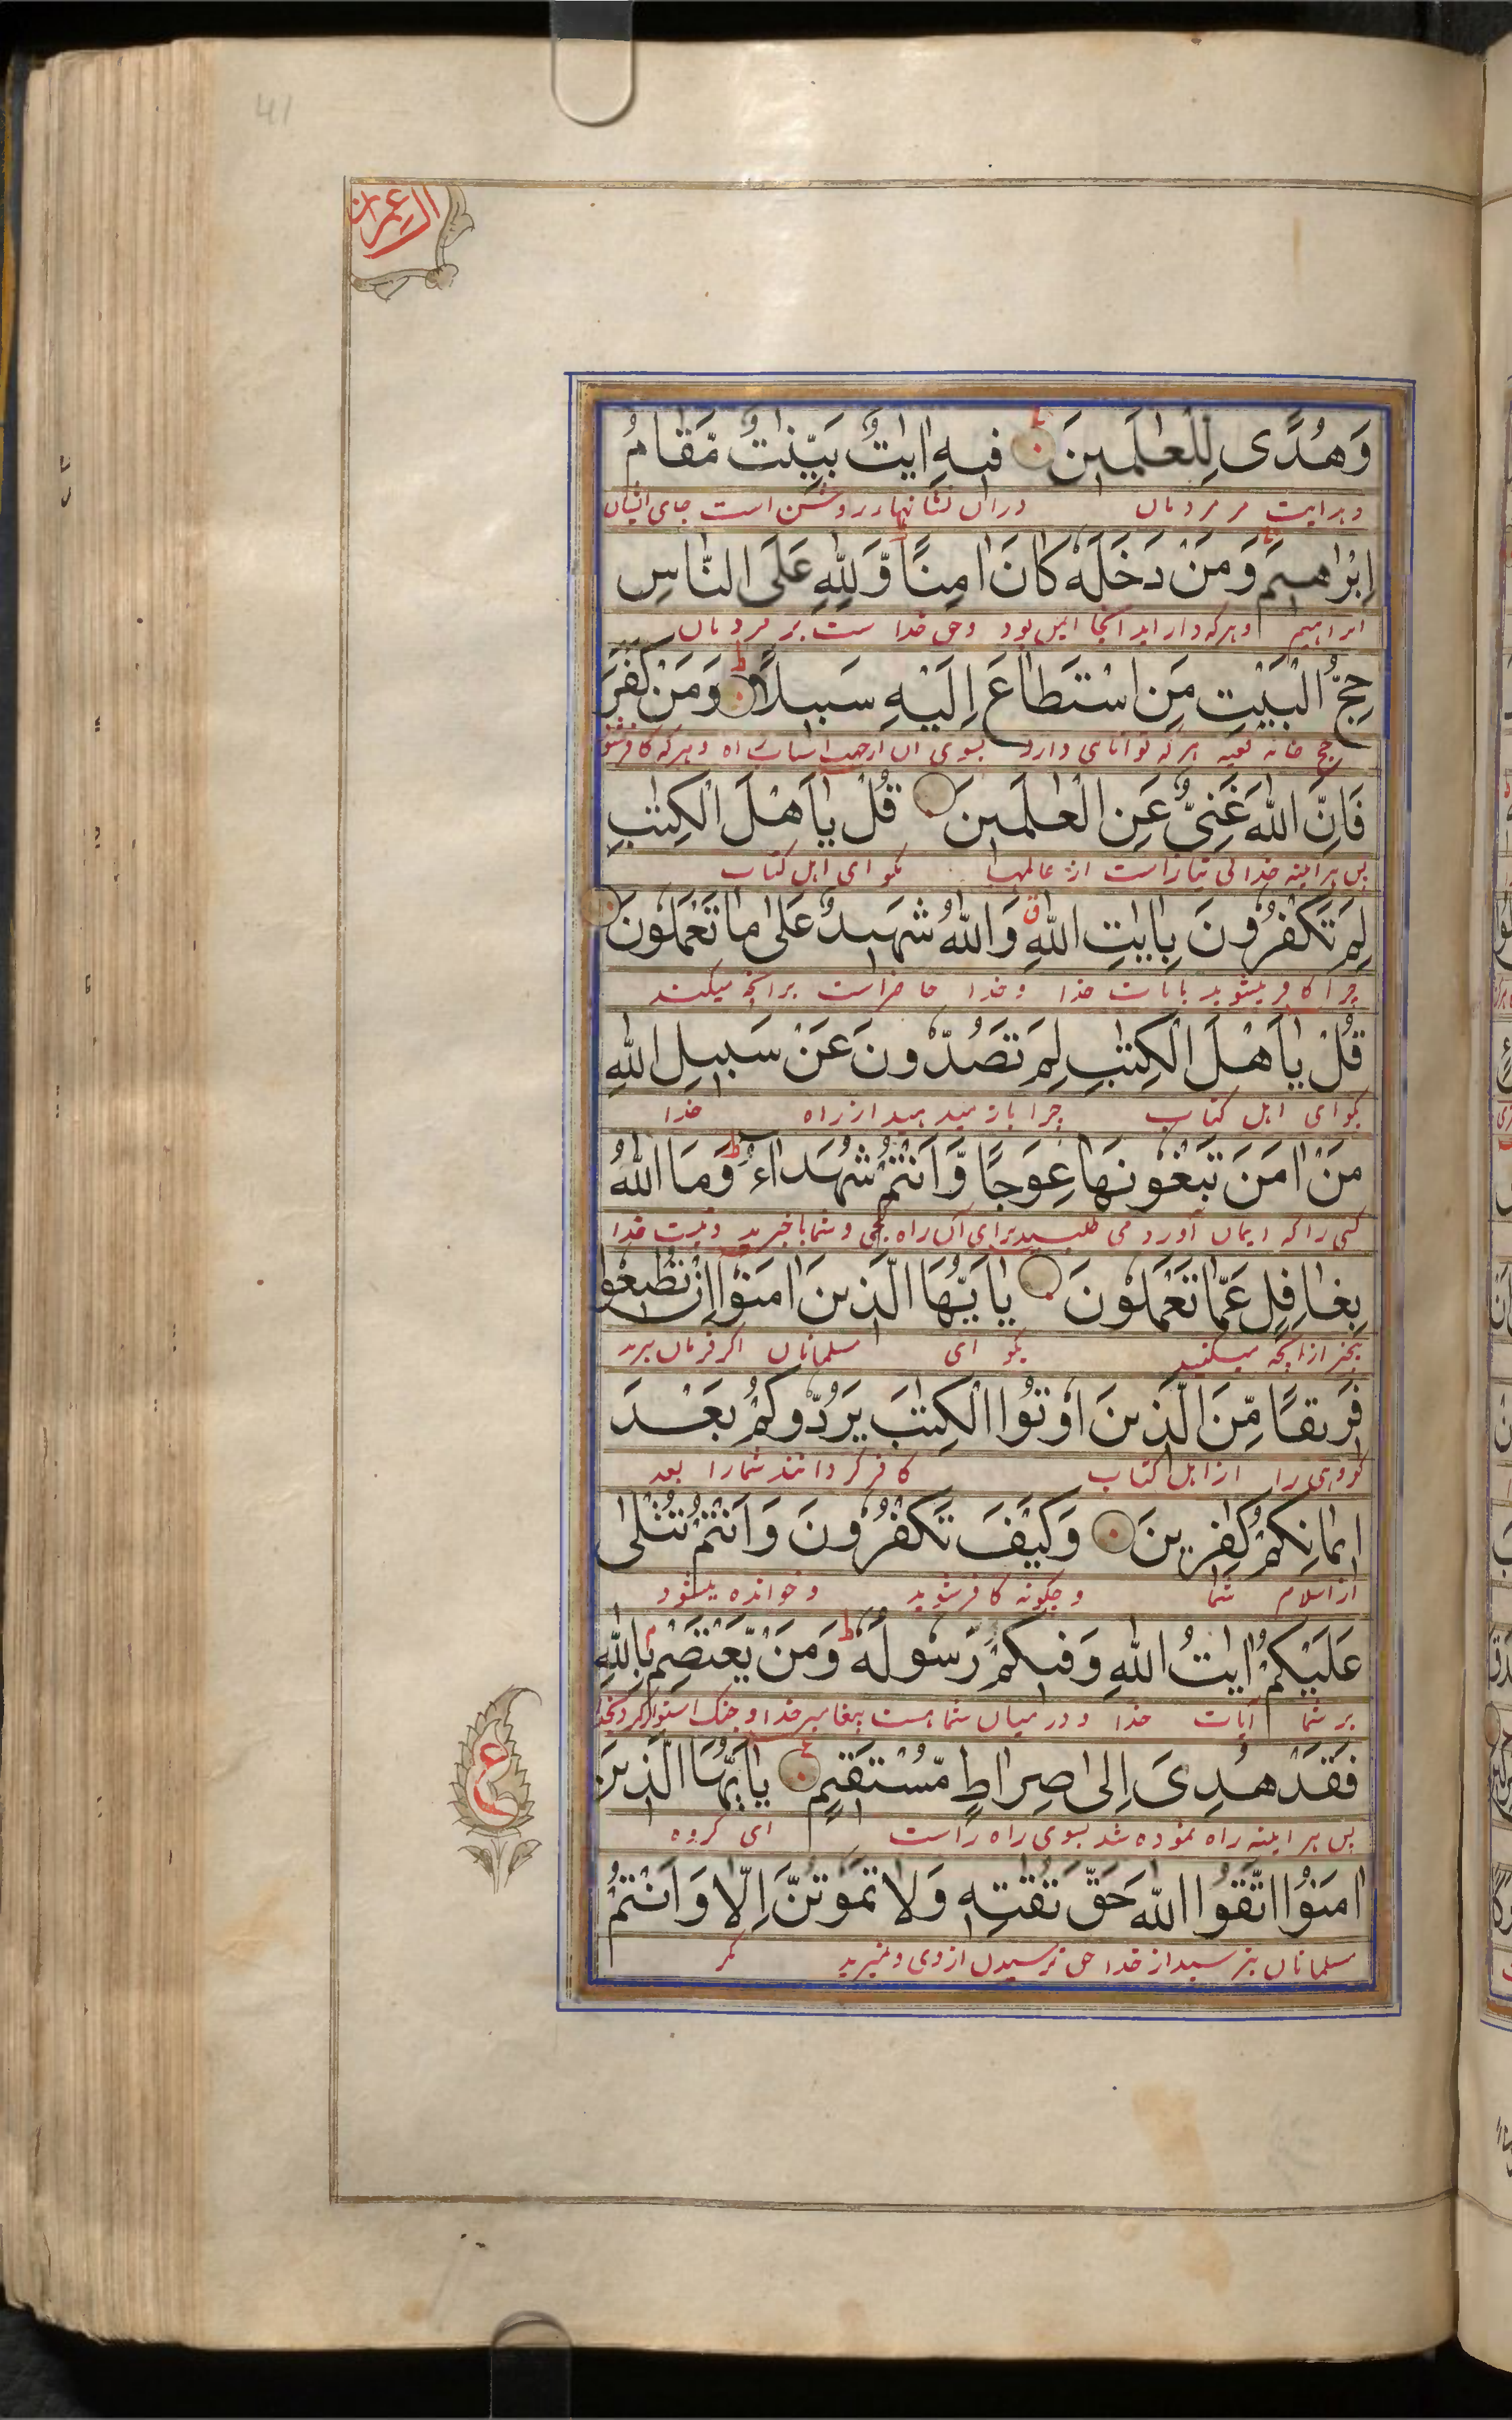 41
ال عمران
وَهُدًى لِلْعٰلَمِينَ ط فِيهِ اٰيٰتٌ بَيِّنٰتٌ مَّقَامُ
و هدایت مر مردمان در ان نشانهای روشن است جای ایشان
اِبْرٰهِيمَ وَمَنْ دَخَلَهٗ كَانَ اٰمِنًا وَّلِلّٰهِ عَلَى النَّاسِ
ابراهیم و هرکه دار اید انجا ایمن بود و حق خدا ست بر مردمان
حِجُّ الْبَيْتِ مَنِ اسْتَطَاعَ اِلَيْهِ سَبِيلًا ط وَمَنْ كَفَرَ
حج خانه کعبه هرکه توانای دارد بسوی ان از جهت اسباب راه و هرکه کافر شود
فَاِنَّ اللّٰهَ غَنِيٌّ عَنِ الْعٰلَمِينَ قُلْ يٰاَهْلَ الْكِتٰبِ
پس هراینه خدا بی نیاز است از عالمها بکو ای اهل کتاب
لِمَ تَكْفُرُونَ بِاٰيٰتِ اللّٰهِ ق وَاللّٰهُ شَهِيدٌ عَلٰى مَا تَعْمَلُونَ
چرا کافر میشوید بایات خدا و خدا حاضر است برانچه میکنند
قُلْ يٰاَهْلَ الْكِتٰبِ لِمَ تَصُدُّونَ عَنْ سَبِيلِ اللّٰهِ
بکو ای اهل کتاب چرا باز میدهید از راه خدا
مَنْ اٰمَنَ تَبْغُونَهَا عِوَجًا وَّاَنْتُمْ شُهَدَاءُ ط وَمَا اللّٰهُ
کسی را که ایمان آورد می طلبید برای آن راه کجی و شما با خبرید و نیست خدا
بِغَافِلٍ عَمَّا تَعْمَلُونَ يٰاَيُّهَا الَّذِينَ اٰمَنُوْا اِنْ تُطِيعُوا
بیخبر از انچه میکنید بکو ای مسلمانان اکر فرمان برید
فَرِيقًا مِّنَ الَّذِينَ اُوْتُوا الْكِتٰبَ يَرُدُّوكُمْ بَعْدَ
کروهی را از اهل کتاب کافر کردانند شما را بعد
اِيمَانِكُمْ كٰفِرِينَ وَكَيْفَ تَكْفُرُونَ وَاَنْتُمْ تُتْلٰى
از اسلام شما و چکونه کافر شوید و خوانده میشود
عَلَيْكُمْ اٰيٰتُ اللّٰهِ وَفِيكُمْ رَسُولُهٗ ط وَمَنْ يَّعْتَصِمْ بِاللّٰهِ
بر شما آیات خدا و در میان شما هست پیغامبر خدا و چنک استوار کرد بخدا
فَقَدْ هُدِيَ اِلٰى صِرَاطٍ مُّسْتَقِيمٍ ع يٰاَيُّهَا الَّذِينَ
پس هر اینه راه نموده شد بسوی راه راست ای کروه
اٰمَنُوْا اتَّقُوا اللّٰهَ حَقَّ تُقٰتِهٖ وَلَا تَمُوتُنَّ اِلَّا وَاَنْتُمْ
مسلمانان بترسید از خدا حق ترسیدن از وی و نمیرید مکر
ع